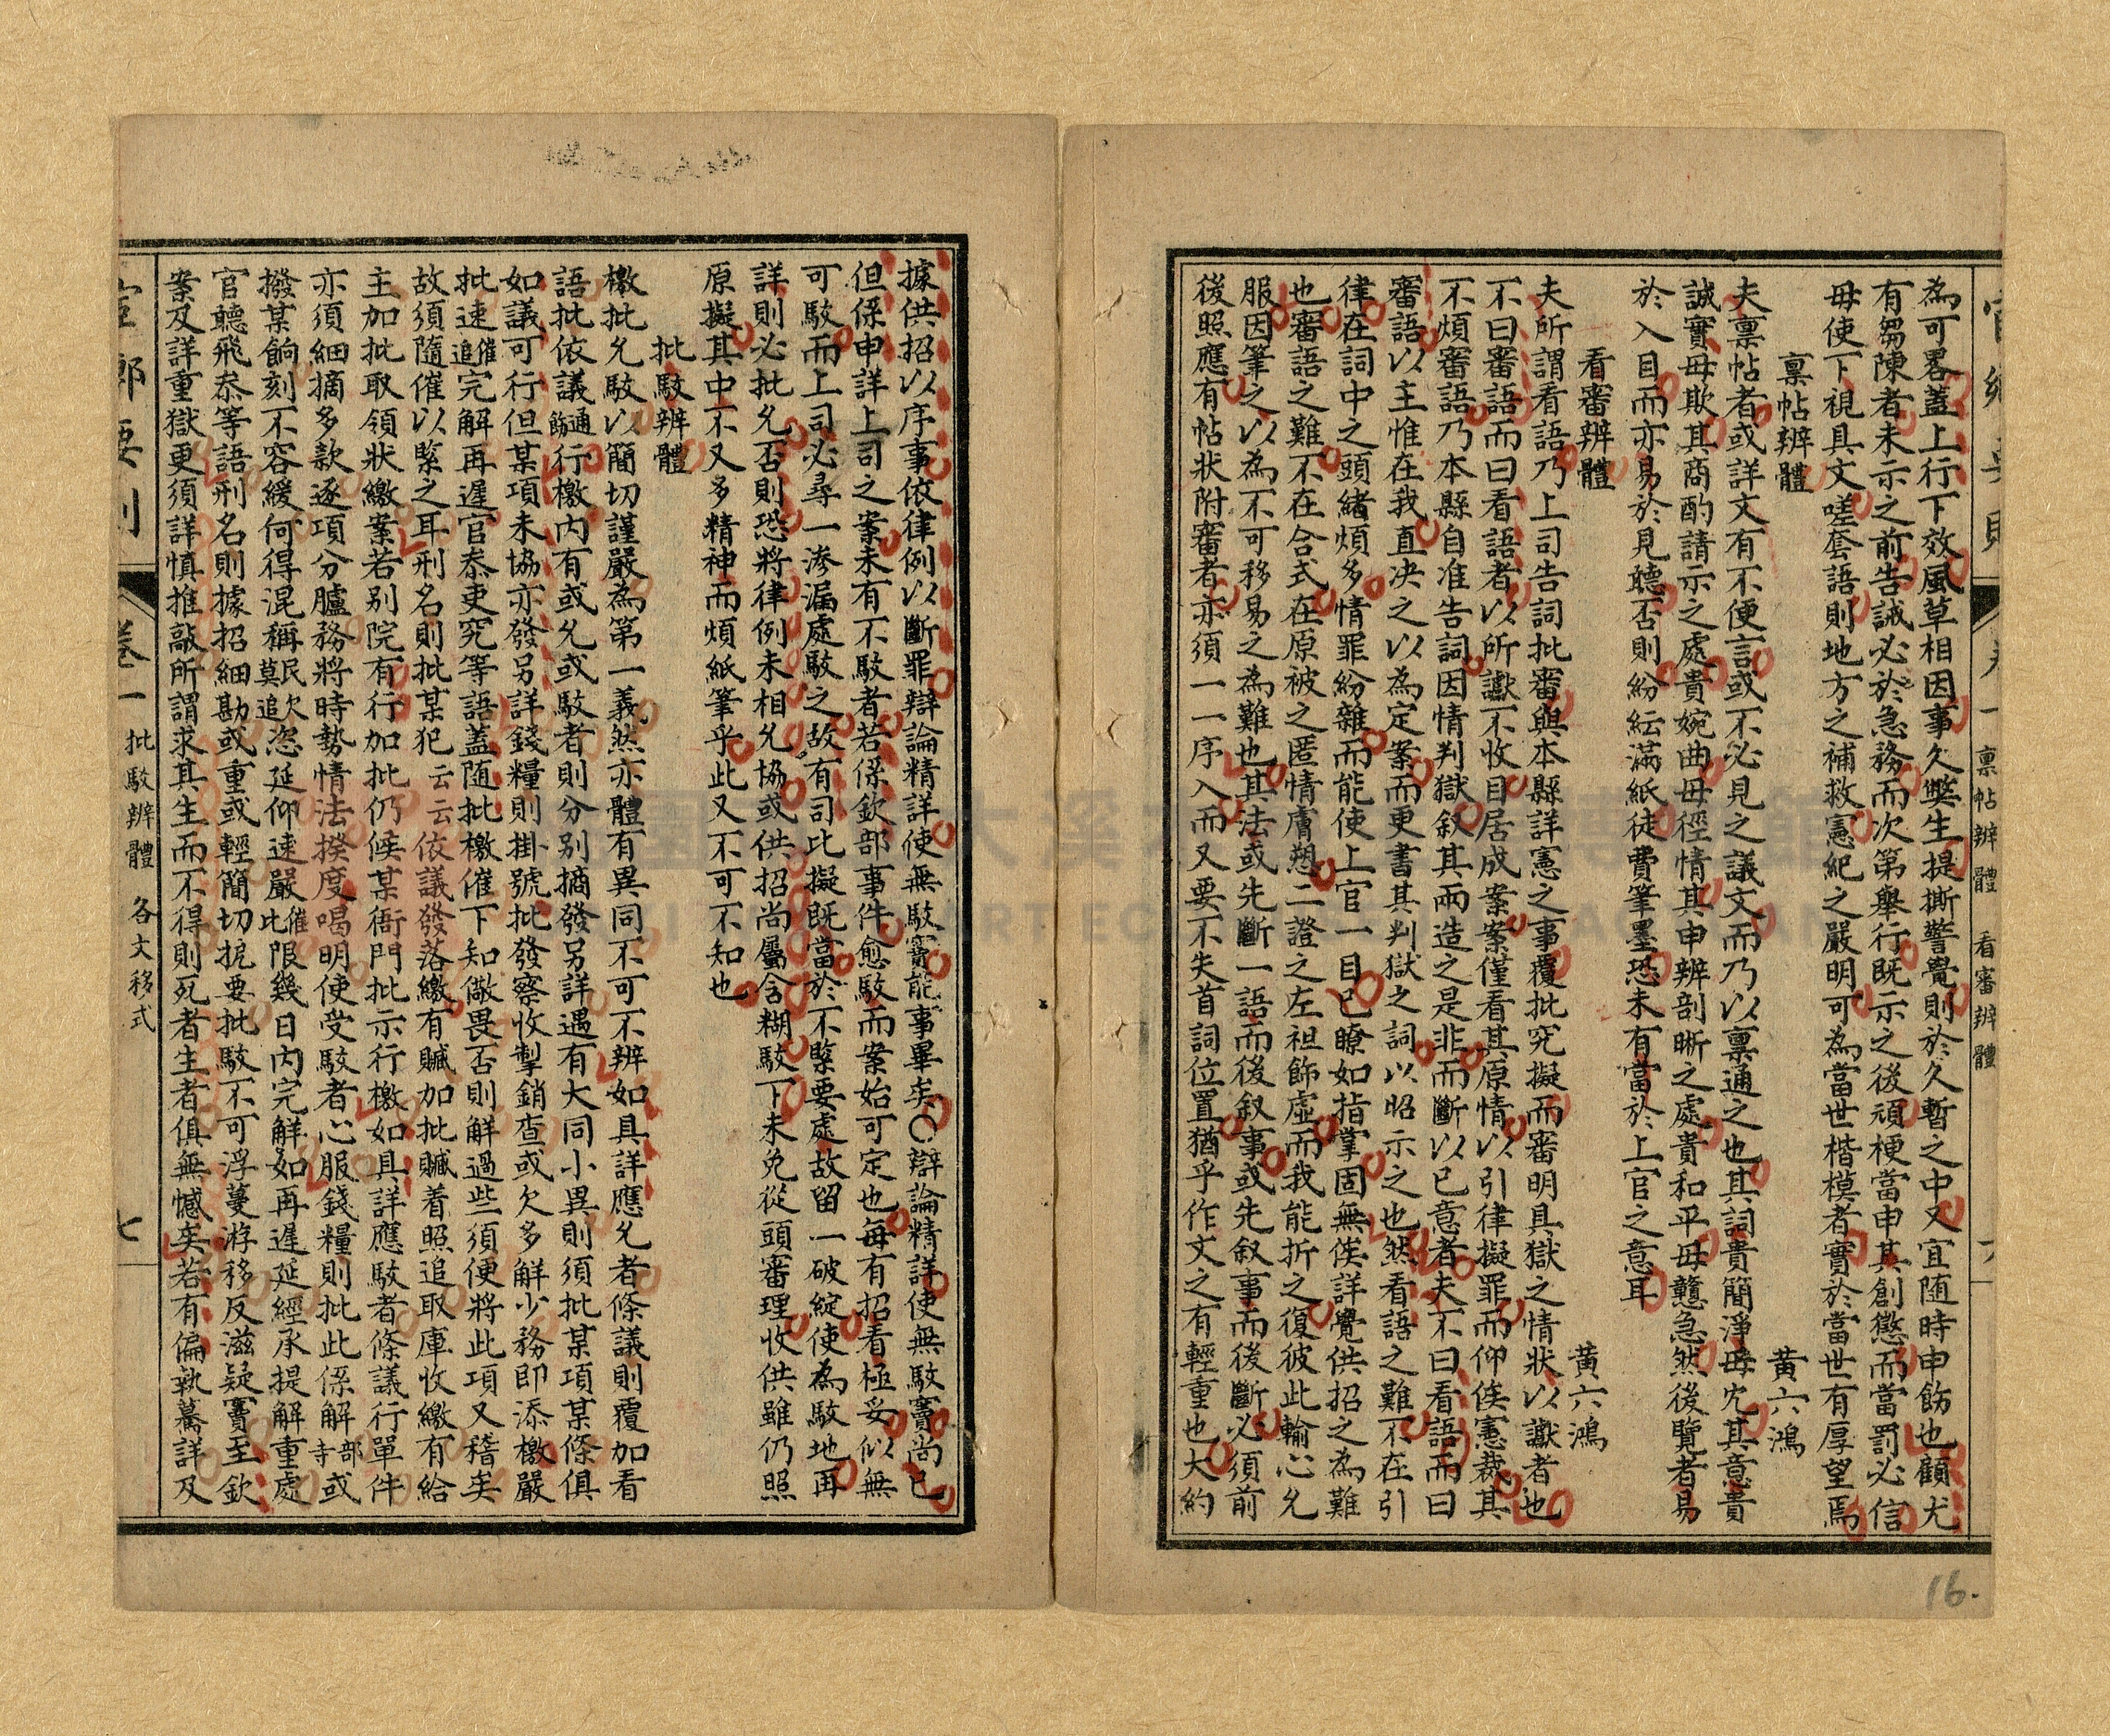 為可畧蓋上行下效風草相因事久獘生提撕警覺則於久暫之中又宜随時申飭也顧尤
有芻陳者未示之前告誡必於急務而次第舉行既示之後頑梗當申其創懲而當罰必信
毋使下視具文嗟套語則地方之補救憲紀之嚴明可為當世楷模者實於當世有厚望焉
稟帖辨體 黄六鴻
夫稟帖者或詳文有不便言或不必見之議文而乃以稟通之也其詞貴簡淨毋宂其意貴
誠實毋欺其商酌請示之處貴婉曲毋徑情其申辨剖晰之處貴和平毋戇急然後覽者易
於入目而亦易於見聽否則紛紜滿紙徒費筆墨恐未有當於上官之意耳
看審辨體 黄六鴻
夫所謂看語乃上司告詞批審與本縣詳憲之事覆批究擬而審明具獄之情狀以讞者也
不曰審語而曰看語者以所讞不收目居成案案僅看其原情以引律擬罪而仰俟憲裁其
不煩審語乃本縣自准告詞因情判獄叙其兩造之是非而斷以已意者夫不曰看語而曰
審語以主惟在我直决之以為定案而更書其判獄之詞以昭示之也然看語之難不在引
律在詞中之頭緒煩多情罪紛雜而能使上官一目已瞭如指掌固無俟詳覺供招之為難
也審語之難不在合式在原被之匿情膚愬二證之左袒飾虛而我能折之復彼此輸心允
服因筆之以為不可移易之為難也其法或先斷一語而後叙事或先叙事而後斷必須前
後照應有帖狀附審者亦須一一序入而又要不失首詞位置猶乎作文之有輕重也大約
官鄉要則 卷一 稟帖辨體 看審辨體 六
據供招以序事依律例以斷罪辯論精詳使無駁竇能事畢矣〇辯論精詳使無駁竇尚已
但係申詳上司之案未有不駁者若係欽部事件愈駁而案始可定也每有招看極妥似無
可駁而上司必尋一滲漏處駁之故有司比擬既當於不緊要處故留一破綻使為駁地再
詳則必批允否則恐將律例未相允協或供招尚屬含糊駁下未免從頭審理收供雖仍照
原擬其中不又多精神而煩紙筆乎此又不可不知也
批駁辨體
檄批允駁以簡切謹嚴為第一義然亦體有異同不可不辨如具詳應允者條議則覆加看
語批依議通飭行檄內有或允或駁者則分别摘發另詳遇有大同小異則須批某項某條俱
如議可行但某項未協亦發另詳錢糧則掛號批發察收掣銷查或欠多解少務即添檄嚴
批速催追完解再遲官叅吏究等語蓋随批檄催下知儆畏否則解過些須便將此項又稽矣
故須隨催以緊之耳刑名則批某犯云云依議發落繳有贓加批贓着照追取庫收繳有給
主加批取領狀繳案若别院有行加批仍候某衙門批示行檄如具詳應駁者條議行單件
亦須細摘多款逐項分臚務將時勢情法揆度喝明使受駁者心服錢糧則批此係解部寺或
撥某餉刻不容緩何得混稱民欠莫追恣延仰速嚴催比限幾日內完解如再遲延經承提解重處
官聽飛叅等語刑名則據招細勘或重或輕簡切扼要批駁不可浮蔓游移反滋疑竇至欽
案及詳重獄更須詳慎推敲所謂求其生而不得則死者生者俱無憾矣若有偏執驀詳及
官鄉要則 卷一 批駁辨體 各文移式 七
16.